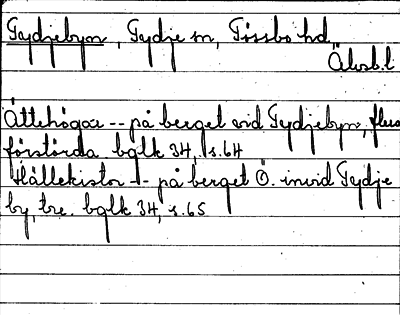 Tydjebyn, Tydje sn, Tössbo hd
Älvsb.l
Ättehögar -- på berget vid Tydjebyn, flera
förstörda bglk 34, s.64
Hällekistor -- på berget Ö. invid Tydje
by, tre. bglk 34, s.65